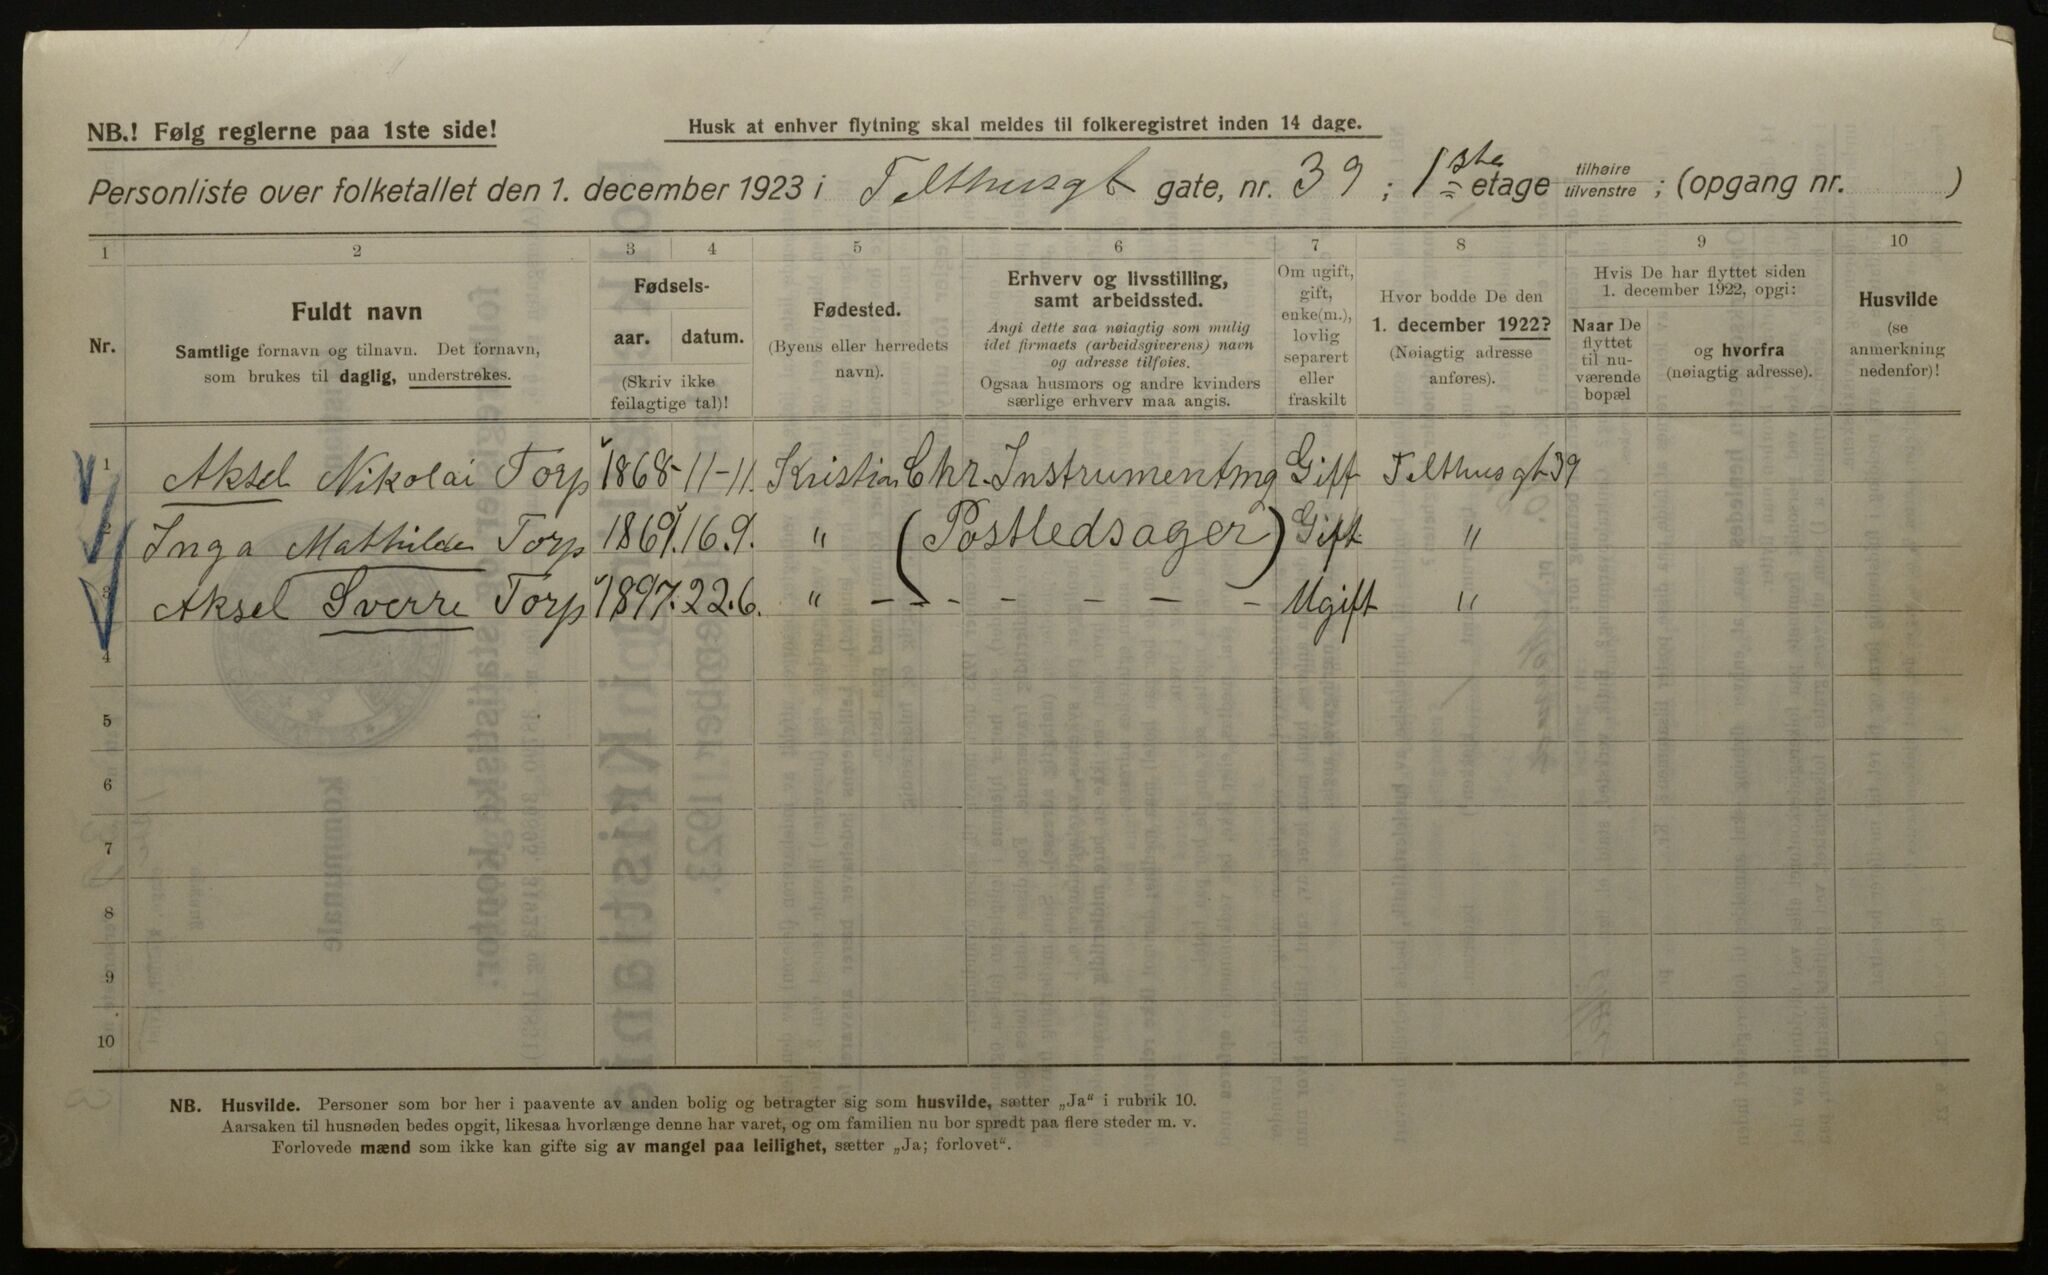 NB.! Følg reglerne paa 1ste side!
Husk at enhver flytning skal meldes til folkeregistret inden 14 dage.
Personliste over folketallet den 1. december 1923 i Telthusgt gate, nr. 39 ; 1ste etage tilhøire tilvenstre ; (opgang nr. )
1 2 3 4 5 6 7 8 9 10
Nr.
Fuldt navn
Samtlige fornavn og tilnavn. Det fornavn,
som brukes til daglig, understrekes.
Fødsels-
aar. datum.
(Skriv ikke
feilagtige tal)!
Fødested.
(Byens eller herredets
navn).
Erhverv og livsstilling,
samt arbeidssted.
Angi dette saa nøiagtig som mulig
idet firmaets (arbeidsgiverens) navn
og adresse tilføies.
Ogsaa husmors og andre kvinders
særlige erhverv maa angis.
Om ugift,
gift,
enke(m.),
lovlig
separert
eller
fraskilt
Hvor bodde De den
1. december 1922?
(Nøiagtig adresse
anføres).
Hvis De har flyttet siden
1. december 1922, opgi:
Naar De
flyttet
til nu-
værende
bopæl
og hvorfra
(nøiagtig adresse).
Husvilde
(se
anmerkning
nedenfor)!
1 Aksel Nikolai Torp 1868 - 11-11. Kristian Chr. Instrumentmg Gift Telthusgt 39
2 Inga Mathilde Torp 1869. 16.9. " (Postledsager) Gift "
3 Aksel Sverre Torp 1897. 22.6. " - - - - - - - Ugift "
4
5
6
7
8
9
10
NB. Husvilde. Personer som bor her i paavente av anden bolig og betragter sig som husvilde, sætter „Ja" i rubrik 10.
Aarsaken til husnøden bedes opgit, likesaa hvorlænge denne har varet, og om familien nu bor spredt paa flere steder m. v.
Forlovede mænd som ikke kan gifte sig av mangel paa leilighet, sætter „Ja; forlovet".